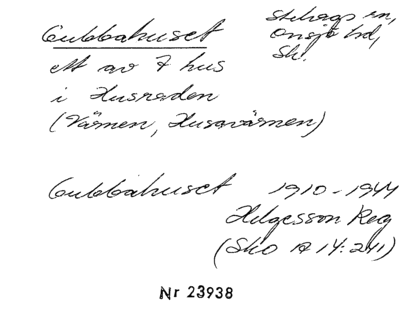 Gubbahuset
Stehags sn,
Onsjö hd,
Sk.
ett av 7 hus
i Husraden
(Värnen, Husavärnen)
Gubbahuset 1910-1944
Helgesson Reg
(Sko A 14:241)
Nr 23938